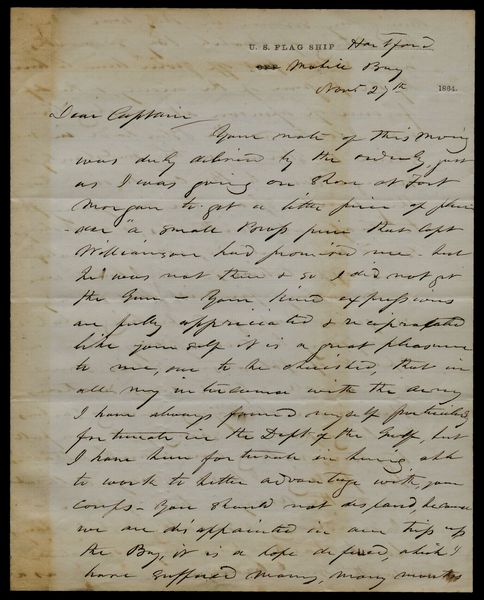 U. S. FLAG SHIP Hartford
OFF Mobile Bay
Novr 27th 1864.
Dear Captain
Your note of this morng
was duly delivered by the orderly, just
as I was going on Shore at Fort
Morgan to get a little piece of plun
-der "a small Brass piece that Capt
Williamson had promised me but
he was not there & so I did not get
the Gun – Your kind expressions
are fully appreciated & reciprocated
like yourself it is a great pleasure
to me, one to be cherished, that in
all my intercourse with the army
I have always found myself particularly
fortunate in the Dept of the Gulf, but
I have been fortunate in being able
to work to better advantage with your
Corps – You should not despond, because
we are disappointed in our trip up
the Bay, it is a hope deferred, which I
have suffered many, many months